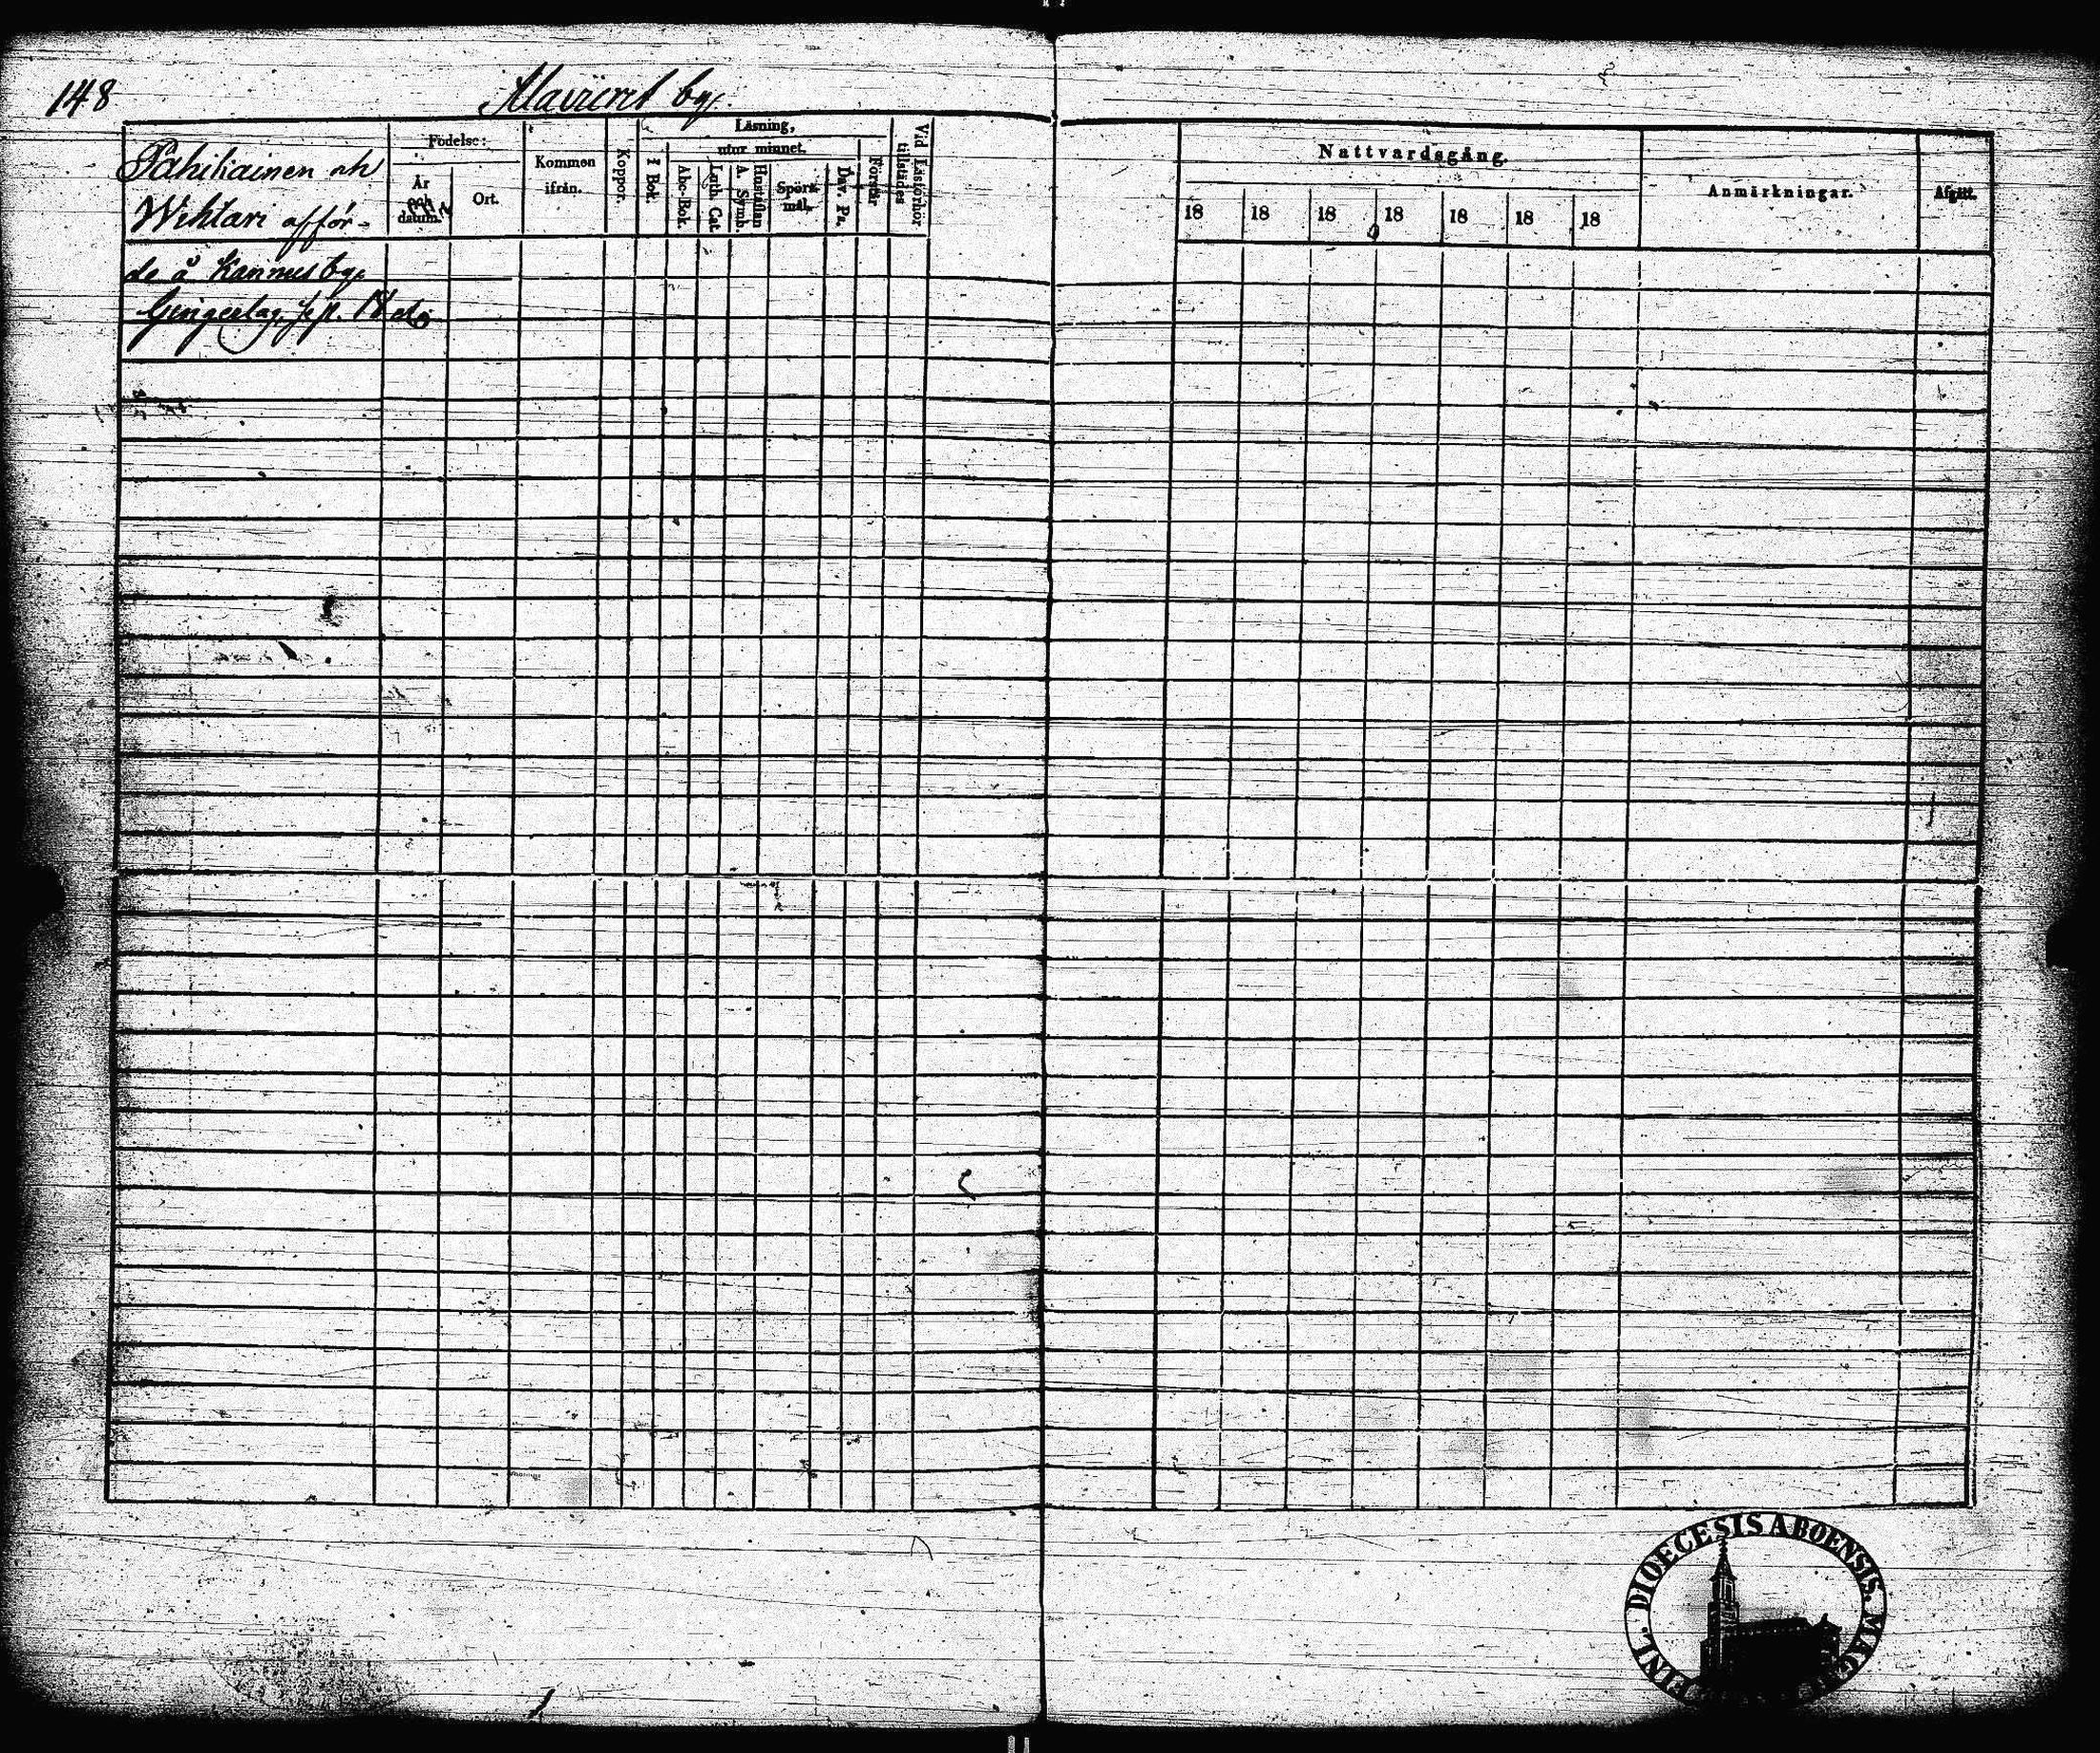 148
Alavieret by.
Födelse:
År och datum.
Ort.
Kommen ifrån.
Koppor.
I Bok.
Läsning,
utur minnet.
Abc-Bok.
Luth. Cat.
Hustaflan A. Symb.
Spörs-mål.
Dav. Ps.
Förstår
Vid Läsförhör tillstädes
Nattvardsgång.
18 18 18 18 18 18 18
Anmärkningar.
Afgått.
Pahikainen och
Wihtari afför-
de å Kannus by,
DIOECESIS ABOENSIS. MAGN
FINL.